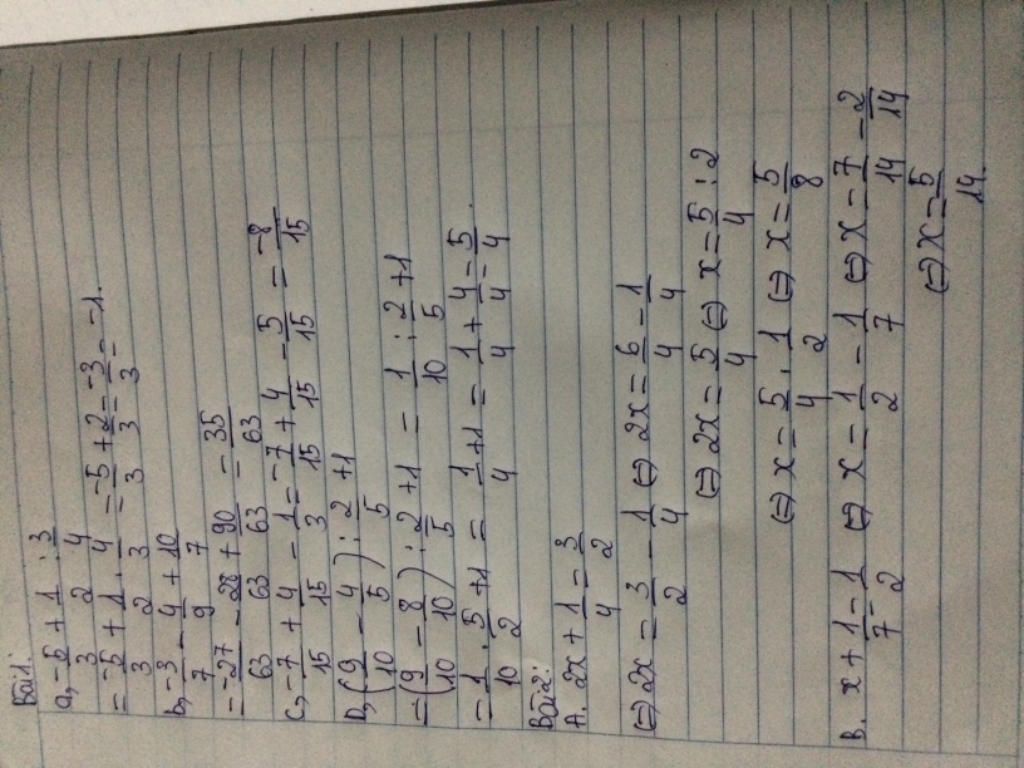 Bài 1:
a, -5/3 + 1/2 : 3/4
= -5/3 + 1/2 . 4/3 = -5/3 + 2/3 = -3/3 = -1.
b, -3/7 - 4/9 + 10/7
= -27/63 - 28/63 + 90/63 = 35/63
c, -7/15 + 4/15 - 1/3 = -7/15 + 4/15 - 5/15 = -8/15
D, (9/10 - 4/5) : 2/5 + 1
= (9/10 - 8/10) : 2/5 + 1 = 1/10 : 2/5 + 1
= 1/10 . 5/2 + 1 = 1/4 + 1 = 1/4 + 4/4 = 5/4.
Bài 2:
A. 2x + 1/4 = 3/2
⇔ 2x = 3/2 - 1/4 ⇔ 2x = 6/4 - 1/4
⇔ 2x = 5/4 ⇔ x = 5/4 : 2
⇔ x = 5/4 . 1/2 ⇔ x = 5/8
B. x + 1/7 = 1/2 ⇔ x = 1/2 - 1/7 ⇔ x = 7/14 - 2/14
⇔ x = 5/14.